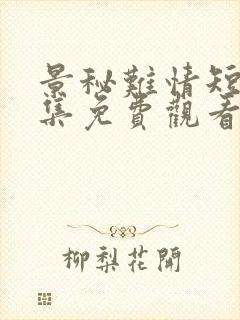 景秘難情短
集免費觀看
柳梨花開